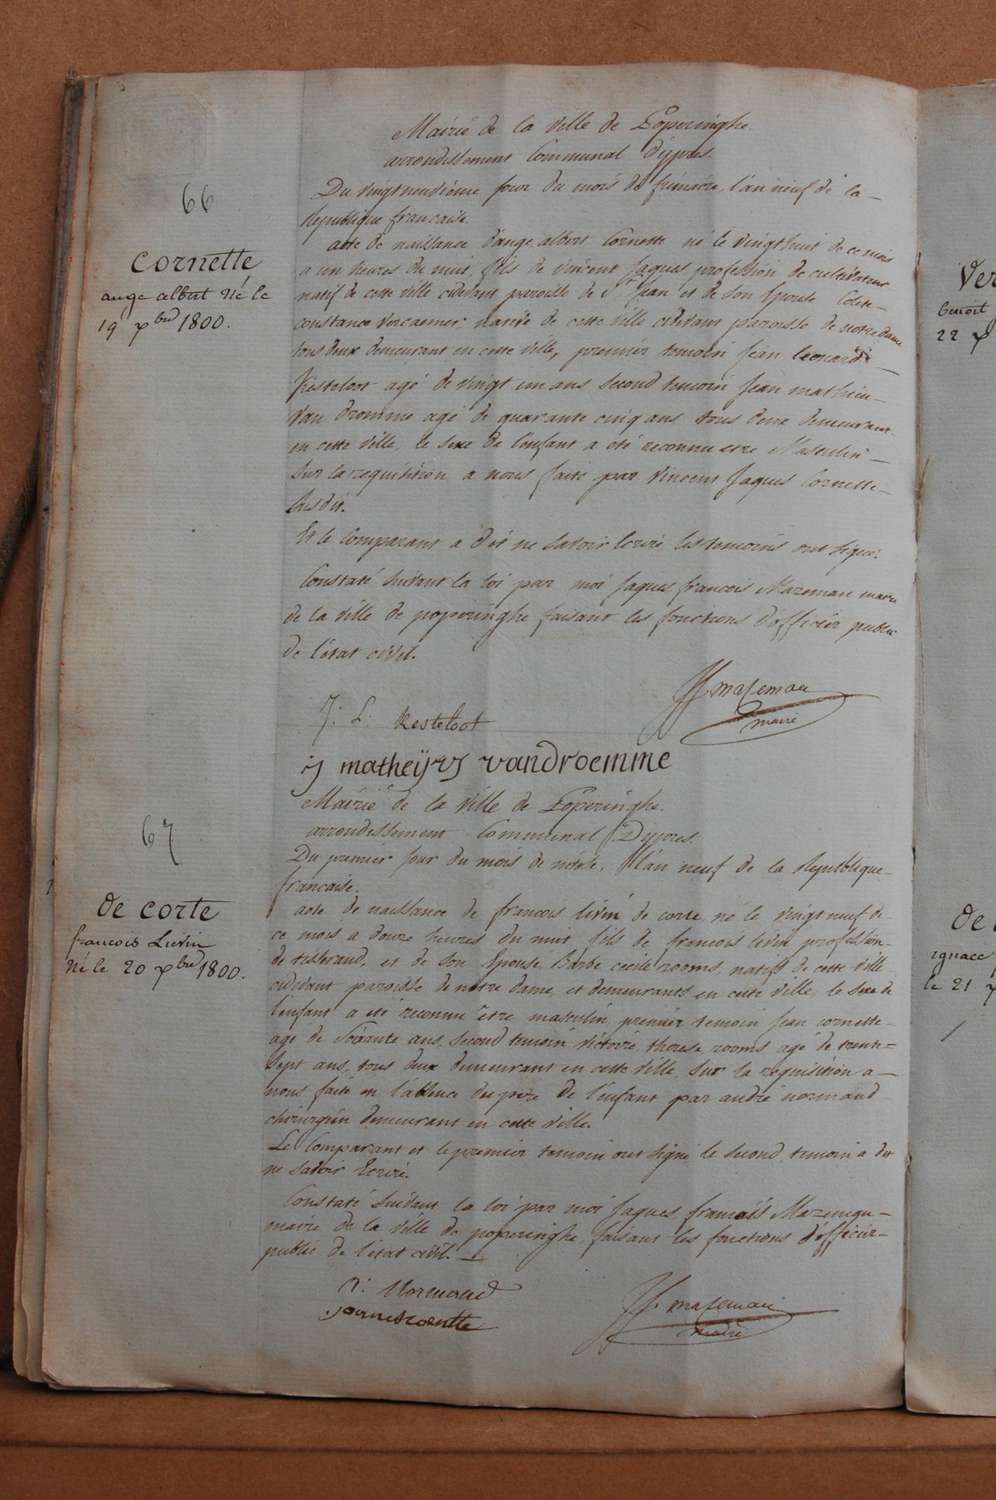 66
Cornette
ange albert Né le
19 xbre 1800.
Mairie de la ville de Poperinghe
arrondissement Communal D'ypres.
Du vingt neuvieme jour du mois de frimaire, l'an neuf de la
Republique francaise.
acte de naissance d'ange albert Cornette né le vingt huit de ce mois
a un heures du nuit, fils de vincent Jaques profession de cultivateur
natif de cette ville cidevant paroisse de St Jean et de son Epouse
constance vercaemer native de cette ville cidevant paroisse de notre dame
tous deux demeurant en cette ville, premier temoin Jean leonard
Kesteloot agé de vingt un ans second temoin Jean mathieu
Van dromme agé de quarante cinq ans tous deux demeurant
en cette ville, le sexe de l'enfant a été reconnu etre Masculin
Sur la requisition a nous faite par vincent Jaques Cornette
susdit.
Et le Comparant a dit ne savoir Ecrire les temoins ont signé.
Constaté suivant la loi par moi Jaques francois Mazeman maire
de la ville de poperinghe faisant les fonctions d'officier public
de l'état civil.
JF mazeman
maire
J: L: Kesteloot
j matheijus vandroemme
67
de corte
francois Lievin
Né le 20 xbre 1800.
Mairie de la ville de Poperinghe
arrondissement Communal D'ypres.
Du premier jour du mois de nivose, l'an neuf de la Republique
francaise.
acte de naissance de francois livin de corte né le vingt neuf de
ce mois a douze heures du nuit, fils de francois livin profession
de tisserand, et de son Epouse Barbe cecile rooms, natifs de cette ville
cidevant paroisse de notre dame, et demeurants en cette ville, le sexe de
l'enfant a été reconnu être masculin, premier temoin Jean cornette
agé de soixante ans, second temoin victoire therese rooms agé de trente
sept ans, tous deux demeurant en cette ville, sur la requisition a
nous faite en l'absence du pere de l'enfant par andré normand
chirurgien demeurant en cette ville.
Le Comparant et le premier temoin ont signé le second temoin a dit
ne savoir Ecrire.
Constaté suivant la loi par moi Jaques francois Mazeman
maire de la ville de poperinghe faisant les fonctions d'officier
public de l'état civil.
Normand
JF. mazeman
maire
Ver
benoit
22
de
ignace
le 21